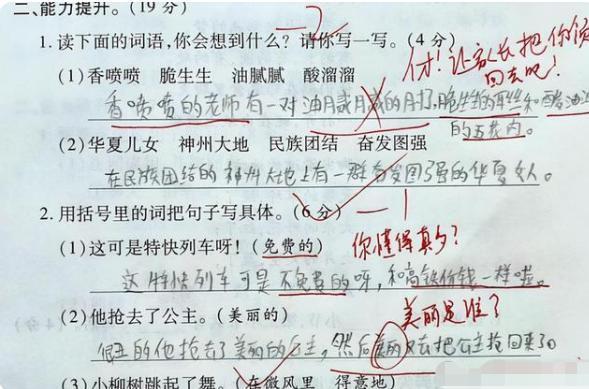 二、能力提升。(19分) -2
1.读下面的词语,你会想到什么?请你写一写。(4分)
(1)香喷喷 脆生生 油腻腻 酸溜溜
付!让家长把你领回去吧!
香喷喷的老师有一对油腻腻的
的五花肉。
(2)华夏儿女 神州大地 民族团结 奋发图强
在民族团结的神州大地上有一群奋发图强的华夏女人。
2.用括号里的词把句子写具体。(6分) -1
(1)这可是特快列车呀!(免费的) 你懂得真多?
这特快列车可是不免费的呀,和高铁价钱一样哇。
(2)他抢去了公主。(美丽的) 美丽是谁?
他抢去了美丽的公主,然后美丽又去把公主抢回来了。
(3)小柳树跳起了舞。(在微风里 得意地)